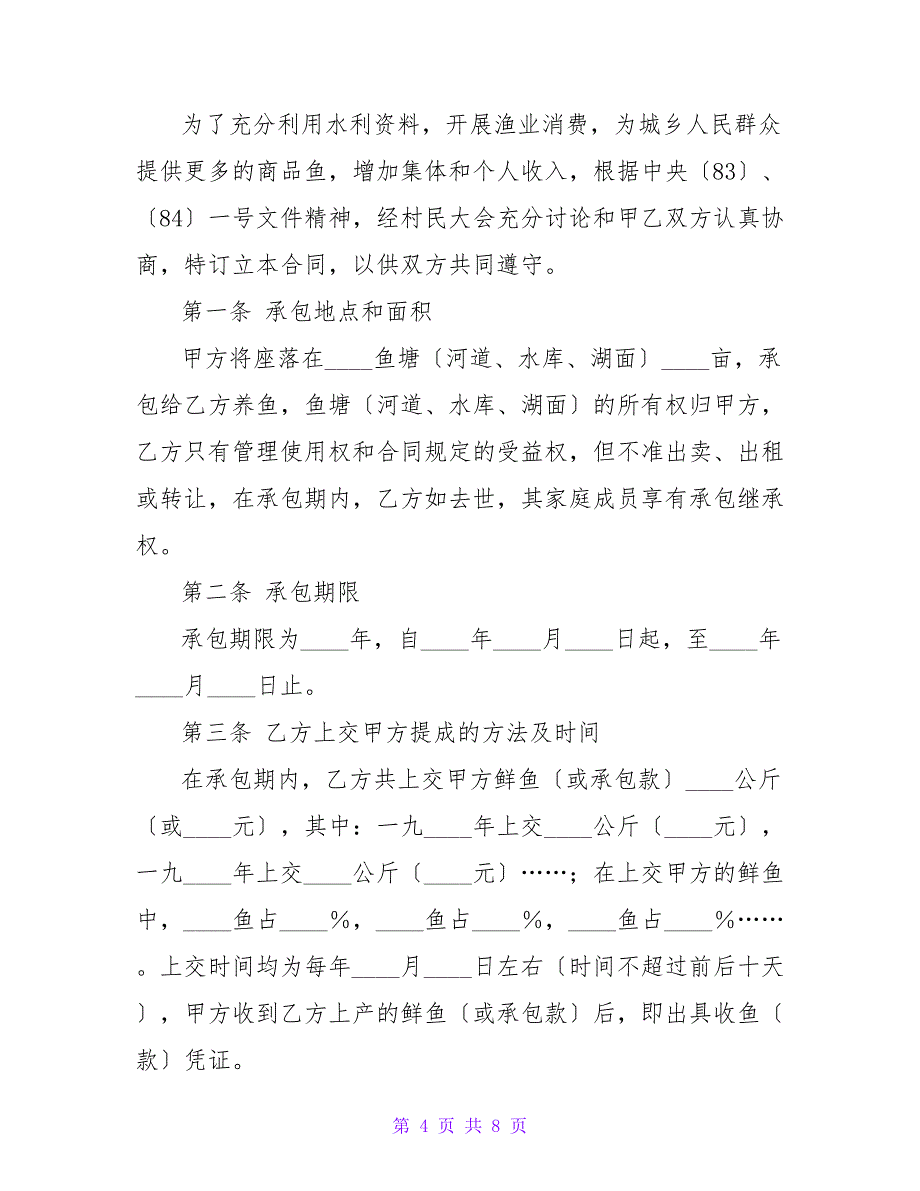 为了充分利用水利资料，开展渔业消费，为城乡人民群众
提供更多的商品鱼，增加集体和个人收入，根据中央〔83〕、
〔84〕一号文件精神，经村民大会充分讨论和甲乙双方认真协
商，特订立本合同，以供双方共同遵守。
第一条 承包地点和面积
甲方将座落在____鱼塘〔河道、水库、湖面〕____亩，承
包给乙方养鱼，鱼塘〔河道、水库、湖面〕的所有权归甲方，
乙方只有管理使用权和合同规定的受益权，但不准出卖、出租
或转让，在承包期内，乙方如去世，其家庭成员享有承包继承
权。
第二条 承包期限
承包期限为____年，自____年____月____日起，至____年
____月____日止。
第三条 乙方上交甲方提成的方法及时间
在承包期内，乙方共上交甲方鲜鱼〔或承包款〕____公斤
〔或____元〕，其中：一九____年上交____公斤〔____元〕，
一九____年上交____公斤〔____元〕……；在上交甲方的鲜鱼
中，____鱼占____%，____鱼占____%，____鱼占____%……
。上交时间均为每年____月____日左右〔时间不超过前后十天
〕，甲方收到乙方上产的鲜鱼〔或承包款〕后，即出具收鱼〔
款〕凭证。
第 4 页 共 8 页